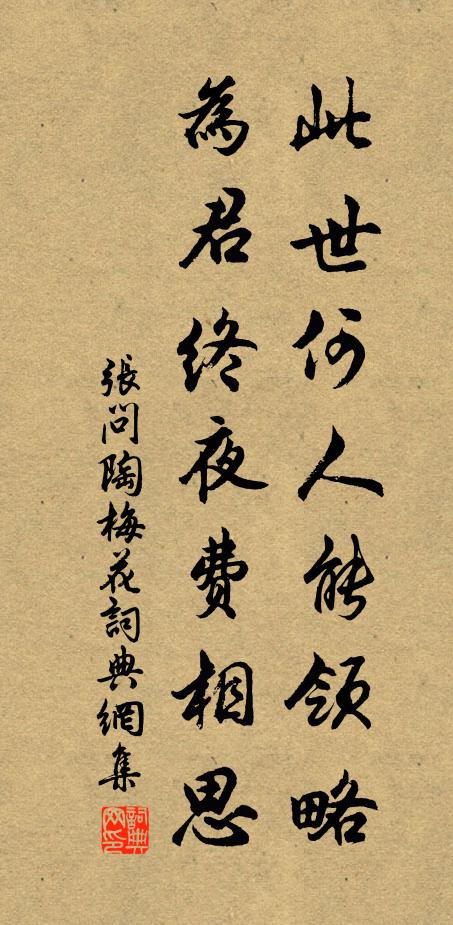 此世何人能領略
為君終夜費相思
張問陶梅花詞典網集
詞典网印